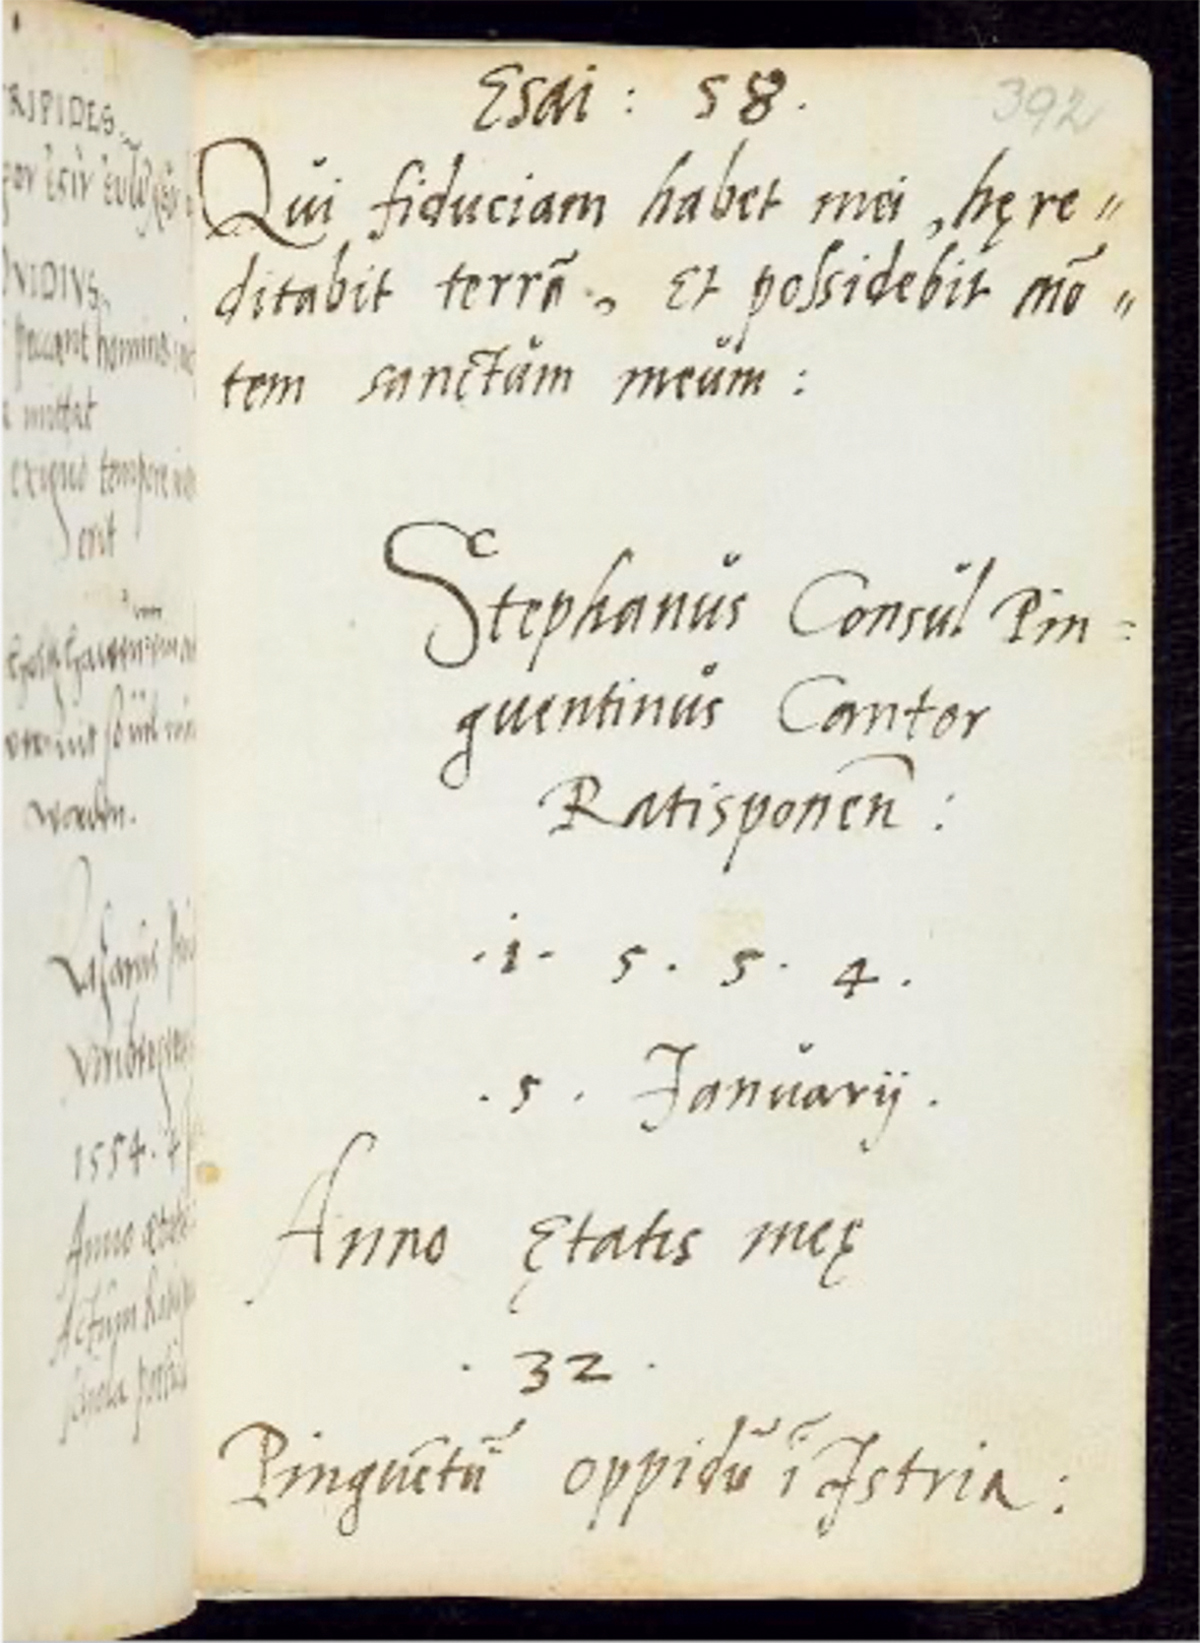 RIPIDES.
ONIDIVS.
peccant homines
mittat
exiguo tempore
erit
worden.
1554. 4
Anno ętatis
Actum
schola
Esai : 58.
392
Qui fiduciam habet mei, hęre〃
ditabit terrã, Et possidebit mõ〃
tem sanctum meum :
Stephanus Consul Pin=
guentinus Cantor
Ratisponen̄ :
.1. 5. 5. 4.
.5. Januarij.
Anno Ętatis meę
. 32 .
Pinguẽtũ oppidũ ĩ Istria :